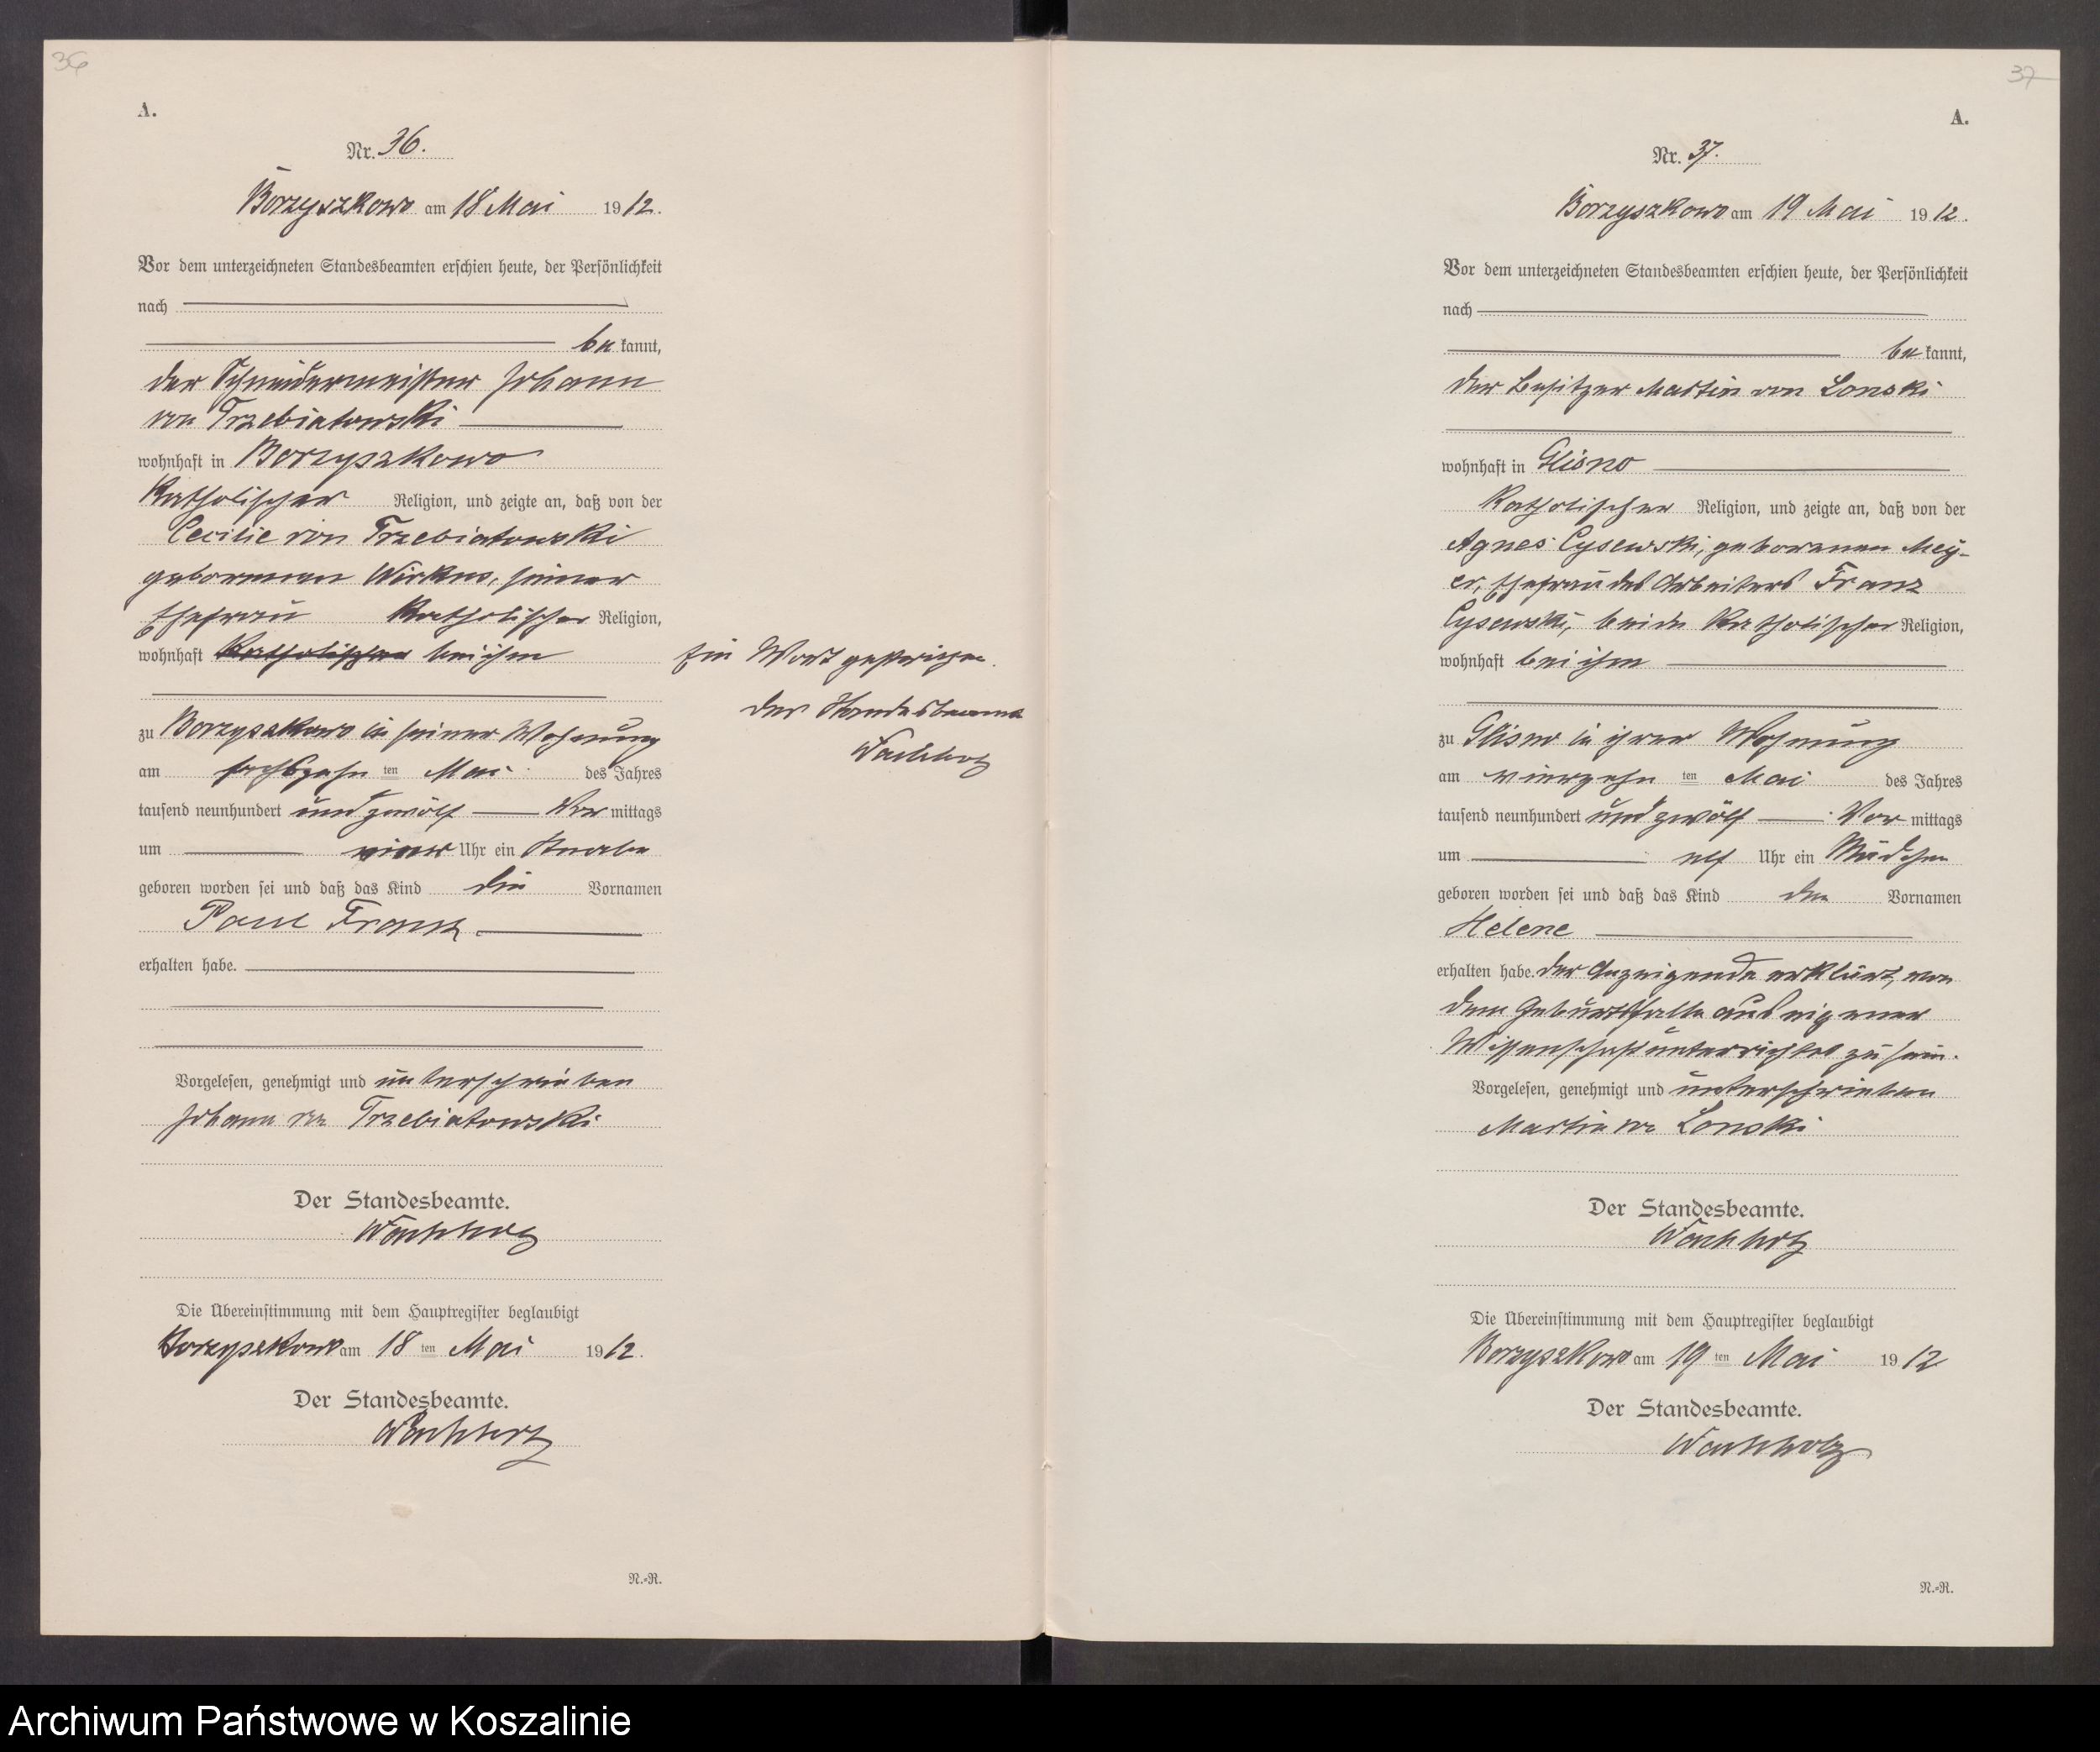 36
A.
Nr. 36.
Borzyszkowo am 18 Mai 1912.
Vor dem unterzeichneten Standesbeamten erschien heute, der Persönlichkeit
nach
bekannt,
der Schneidermeister Johann
von Trzebiatowski
wohnhaft in Borzyszkowo
Katholischer Religion, und zeigte an, daß von der
Cecilie von Trzebiatowski
geborenen Wirkus, seiner
Ehefrau Katholischer Religion,
wohnhaft Katholischen bei ihm
zu Borzyszkowo in seiner Wohnung
am sechszehn ten Mai des Jahres
tausend neunhundert und zwölf Vor mittags
um Uhr ein Knabe
geboren worden sei und daß das Kind die Vornamen
Paul Franz
erhalten habe.
Vorgelesen, genehmigt und unterschrieben
Johann von Trzebiatowski
Der Standesbeamte.
Wachholz
Die Übereinstimmung mit dem Hauptregister beglaubigt
Borzyszkowo am 18 ten Mai 1912.
Der Standesbeamte.
Wachholz
N.-R.
Ein Wort gestrichen.
Der Standesbeamte
Wachholz
37
A.
Nr. 37.
Borzyszkowo am 19 Mai 1912.
Vor dem unterzeichneten Standesbeamten erschien heute, der Persönlichkeit
nach
bekannt,
der Besitzer Martin von Lonski
wohnhaft in Glisno
Katholischer Religion, und zeigte an, daß von der
Agnes Cysewski, geborenen Mey-
er, Ehefrau des Arbeiters Franz
Cysewski, beide Katholischer Religion,
wohnhaft bei ihm
zu Glisno in ihrer Wohnung
am vierzehn ten Mai des Jahres
tausend neunhundert und zwölf Vor mittags
um elf Uhr ein Mädchen
geboren worden sei und daß das Kind den Vornamen
Helene
erhalten habe. Der Anzeigende erklärt, von
dem Geburtsfalle aus eigener
Wissenschaft unterrichtet zu sein.
Vorgelesen, genehmigt und unterschrieben
Martin von Lonski
Der Standesbeamte.
Wachholz
Die Übereinstimmung mit dem Hauptregister beglaubigt
Borzyszkowo am 19 ten Mai 1912
Der Standesbeamte.
Wachholz
N.-R.
Archiwum Państwowe w Koszalinie